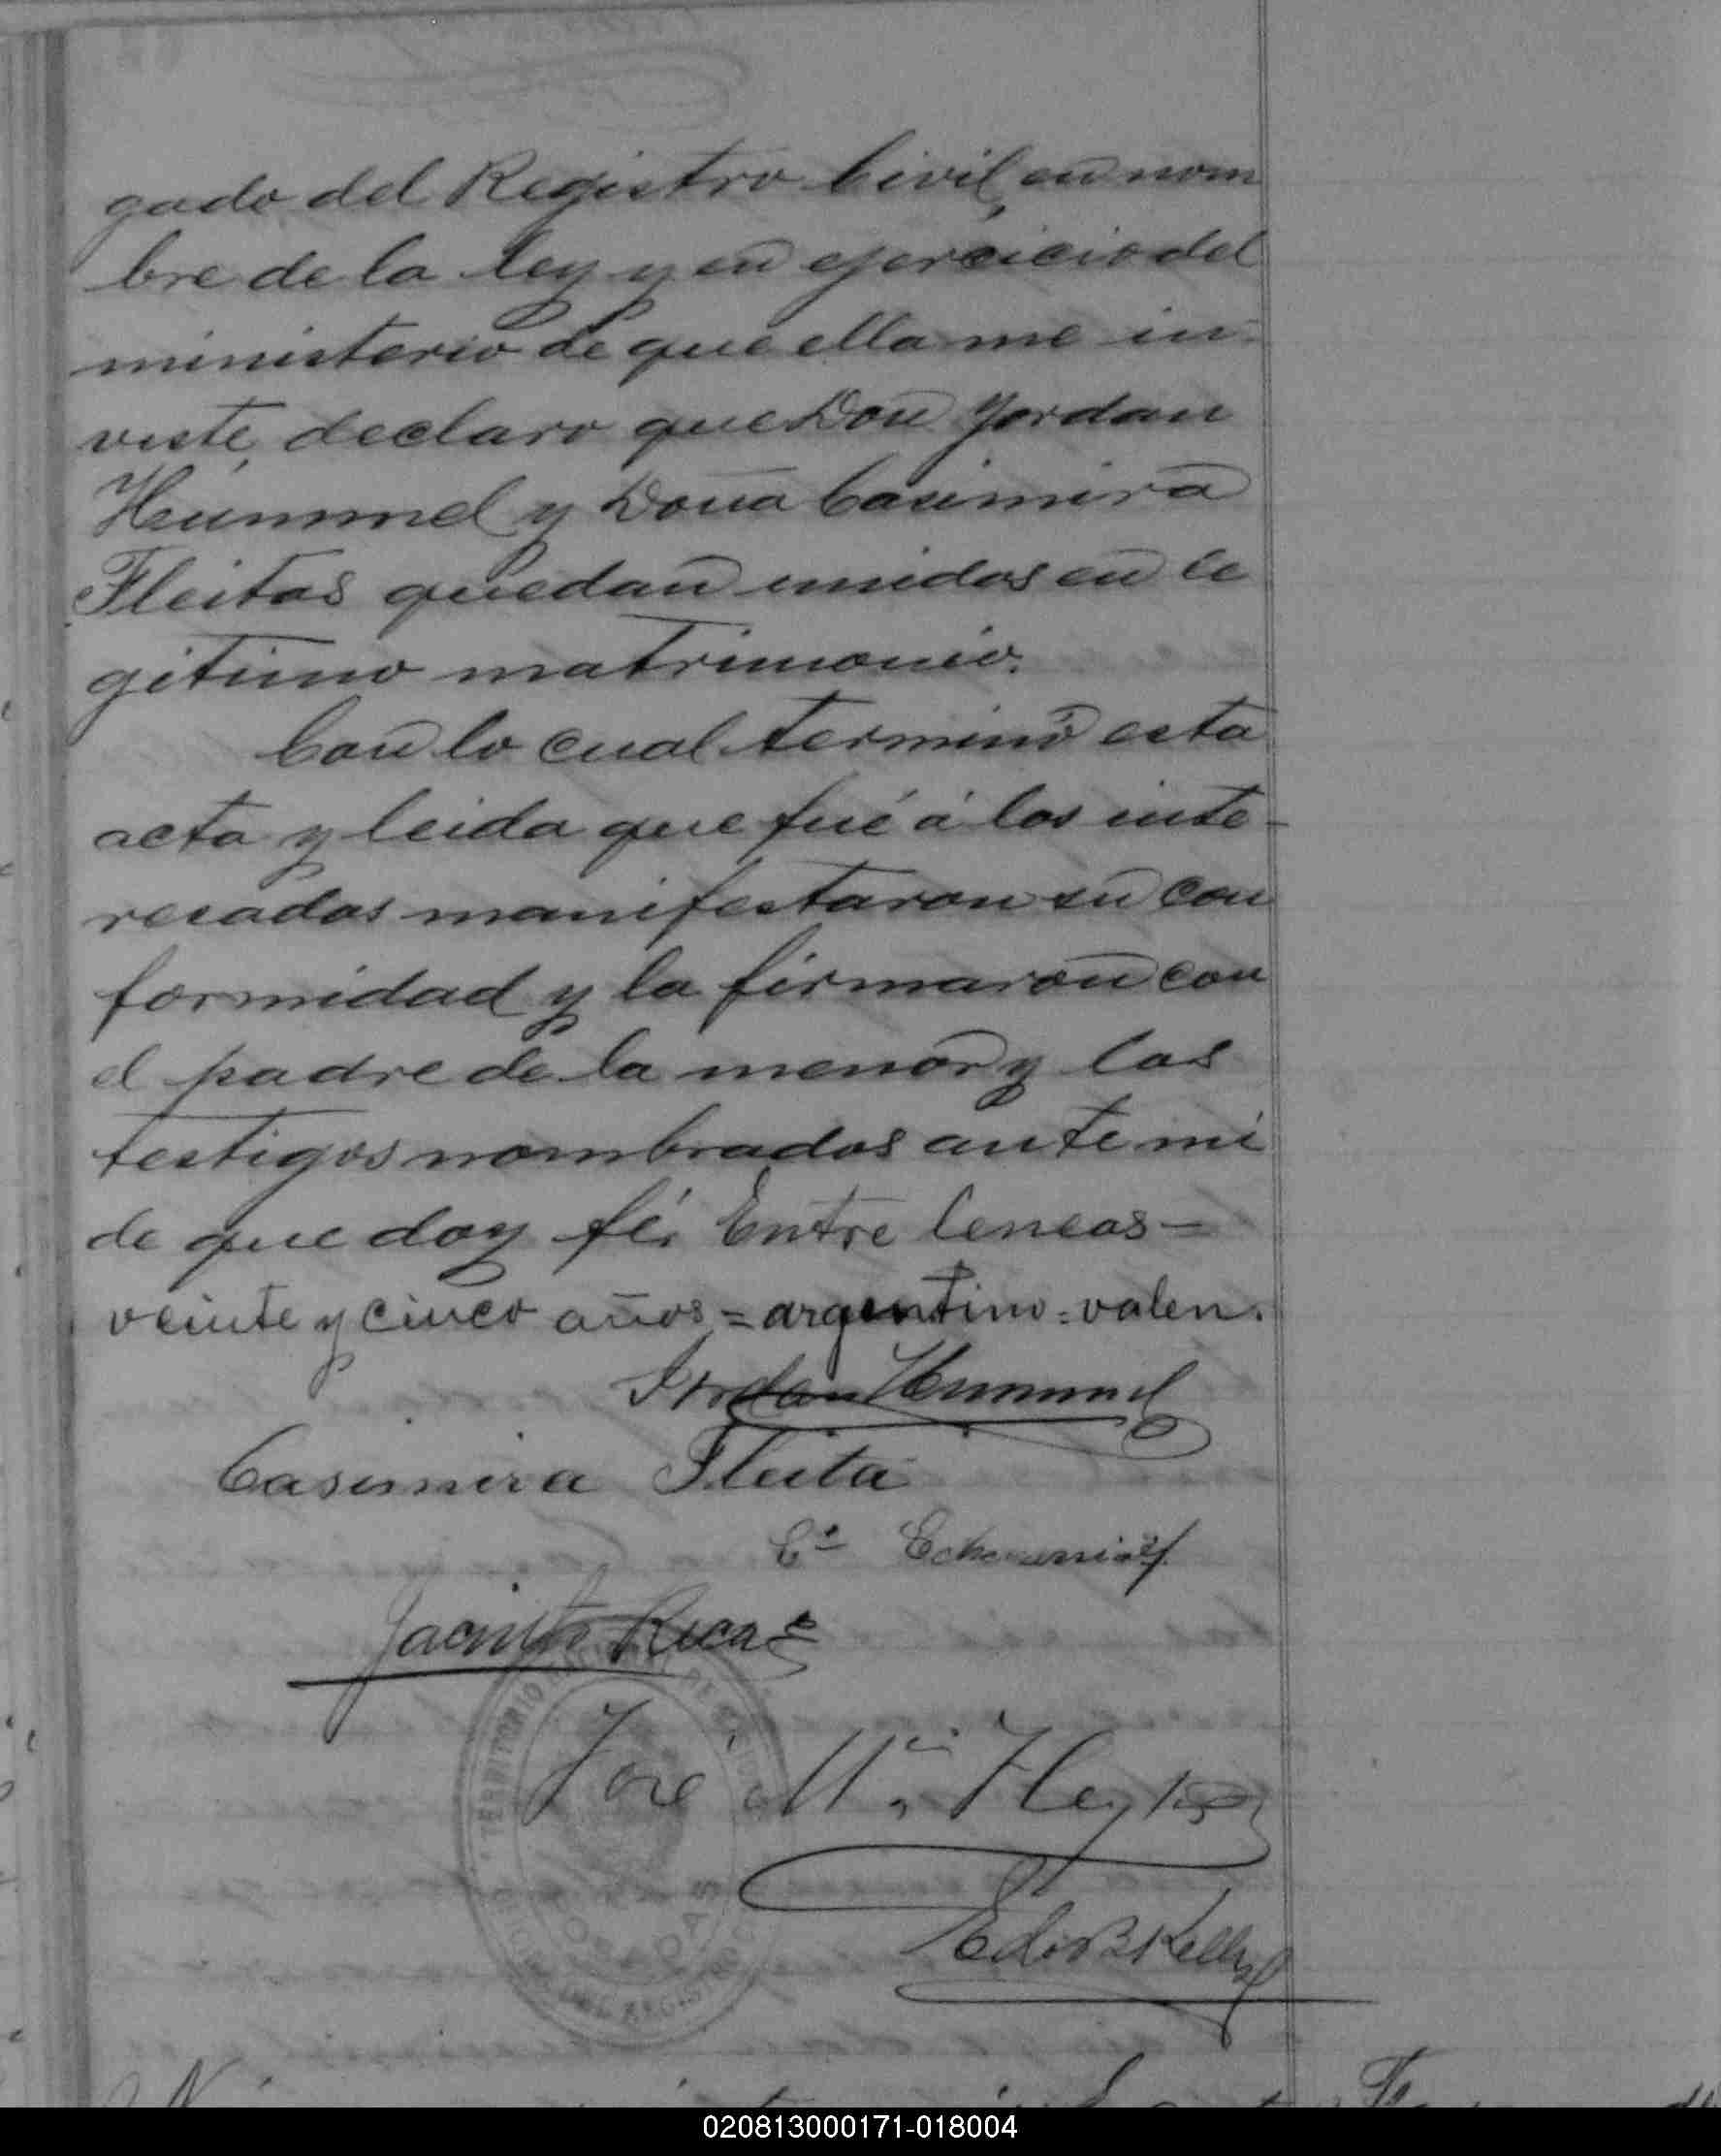 gado del Registro Civil, en nom
bre de la ley y en ejercicio del
ministerio de que ella me in-
viste, declaro que Don Jordan
Hummel y Doña Casimira
Fleitas quedan unidos en le
gitimo matrimonio.
Con lo cual terminó esta
acta y leida que fué á los inte-
resados manifestaron su con
formidad y la firmaron con
el padre de la menor y los
testigos nombrados ante mi
de que doy fé. Entre lineas=
veinte y cinco años,=argentino=valen.
Jordan Hummel
Casimira Fleita
Jacinto
José Ma. Fleytas
TERRITORIO NACIONAL DE MISIONES
POSADAS
OFICINA DEL REGISTRO
020813000171-018004